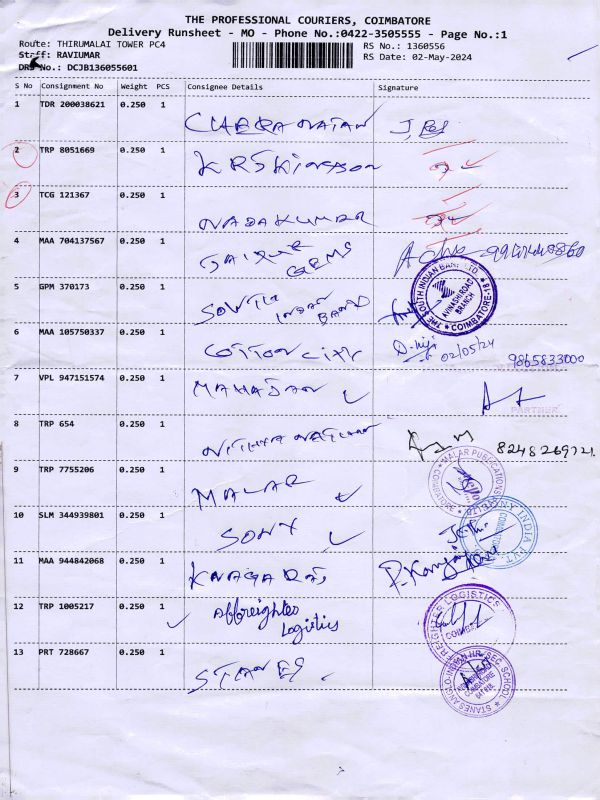 THE PROFESSIONAL COURIERS, COIMBATORE
Delivery Runsheet - MO - Phone No.:0422-3505555 - Page No.:1
Route: THIRUMALAI TOWER PC4
RS No.: 1360556
Staff: RAVIUMAR
RS Date: 02-May-2024
DRS No.: DCJB136055601
S No Consignment No Weight PCS Consignee Details Signature
1 TDR 200038621 0.250 1
2 TRP 8051669 0.250 1
3 TCG 121367 0.250 1
NADAKUMAR
4 MAA 704137567 0.250 1
JAIPUR GEMS
5 GPM 370173 0.250 1
SOUTH INDIAN BANK
THE SOUTH INDIAN BANK LTD
AVINASHI ROAD BRANCH
COIMBATORE-18
6 MAA 105750337 0.250 1
COTTON CITY
02/05/24
9865833000
7 VPL 947151574 0.250 1
MAHAJAN
PARTNER
8 TRP 654 0.250 1
NITHYA NATHAN
9 TRP 7755206 0.250 1
MALAR
MALAR PUBLICATIONS
COIMBATORE
10 SLM 344939801 0.250 1
SONY
SONY INDIA PVT
11 MAA 944842068 0.250 1
KNAGARAJ
12 TRP 1005217 0.250 1
Affreighter Logistics
REIGHTER LOGISTICS
COIMBAT
13 PRT 728667 0.250 1
STANES
STANES ANGLO-INDIAN HR. SEC. SCHOOL
COIMBATORE
641 018